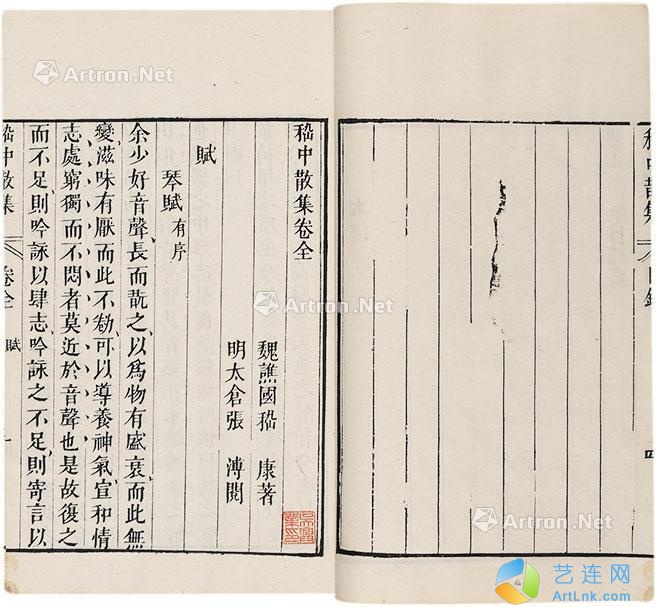 嵇中散集
目錄
四
嵇中散集卷全
魏譙國嵇康著
明太倉張溥閱
賦
琴賦有序
余少好音聲長而翫之以爲物有盛衰而此無
變滋味有厭而此不勌可以導養神氣宣和情
志處窮獨而不悶者莫近於音聲也是故復之
而不足則吟詠以肆志吟詠之不足則寄言以
嵇中散集
卷全
賦
一
Artron.Net
Artron.Net
Artron.Net
Artron.Net
Artron.Net
Artron.Net
艺连网
ArtLnk.com